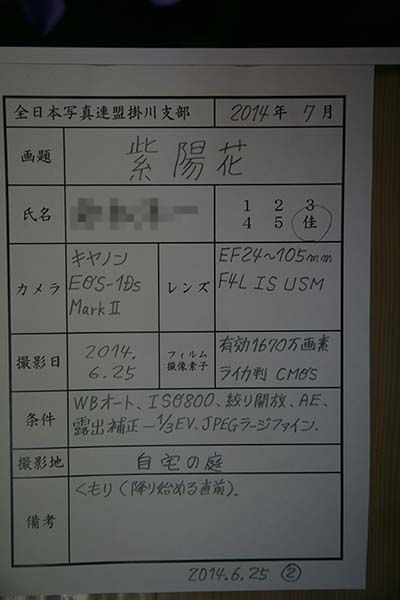 全日本写真連盟掛川支部 2014年 7月
画題 紫陽花
氏名 1 2 3
4 5 佳
カメラ キヤノン
EOS-1Ds
MarkⅡ
レンズ EF24~105mm
F4L IS USM
撮影日 2014.
6.25
フィルム
撮像素子
有効1670万画素
ライカ判 CMOS
条件 WBオート、ISO800、絞り開放、AE、
露出補正-1/3EV、JPEGラージファイン.
撮影地 自宅の庭
備考 くもり(降り始める直前).
2014.6.25 ②